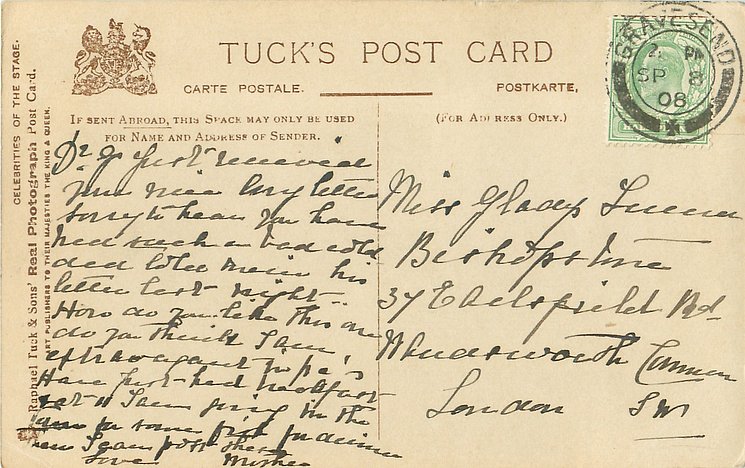 TUCK'S POST CARD
CARTE POSTALE.
POSTKARTE,
IF SENT ABROAD, THIS SPACE MAY ONLY BE USED
FOR NAME AND ADDRESS OF SENDER.
(FOR ADDRESS ONLY.)
CELEBRITIES OF THE STAGE.
Raphael Tuck & Sons' Real Photograph Post Card.
ART PUBLISHERS TO THEIR MAJESTIES THE KING & QUEEN.
GRAVESEND
PM
SP 8
08
Dr G just received
your nice long letter
sorry to hear you have
had such a bad cold
dad his
letter last night
How do you like this one
do you think I am
extravagant
Have just had breakfast
I am going in the
for some fish for dinner
I can post these
Love
Miss Gladys
Bishopstone
37 Rd
Wandsworth Common
London SW